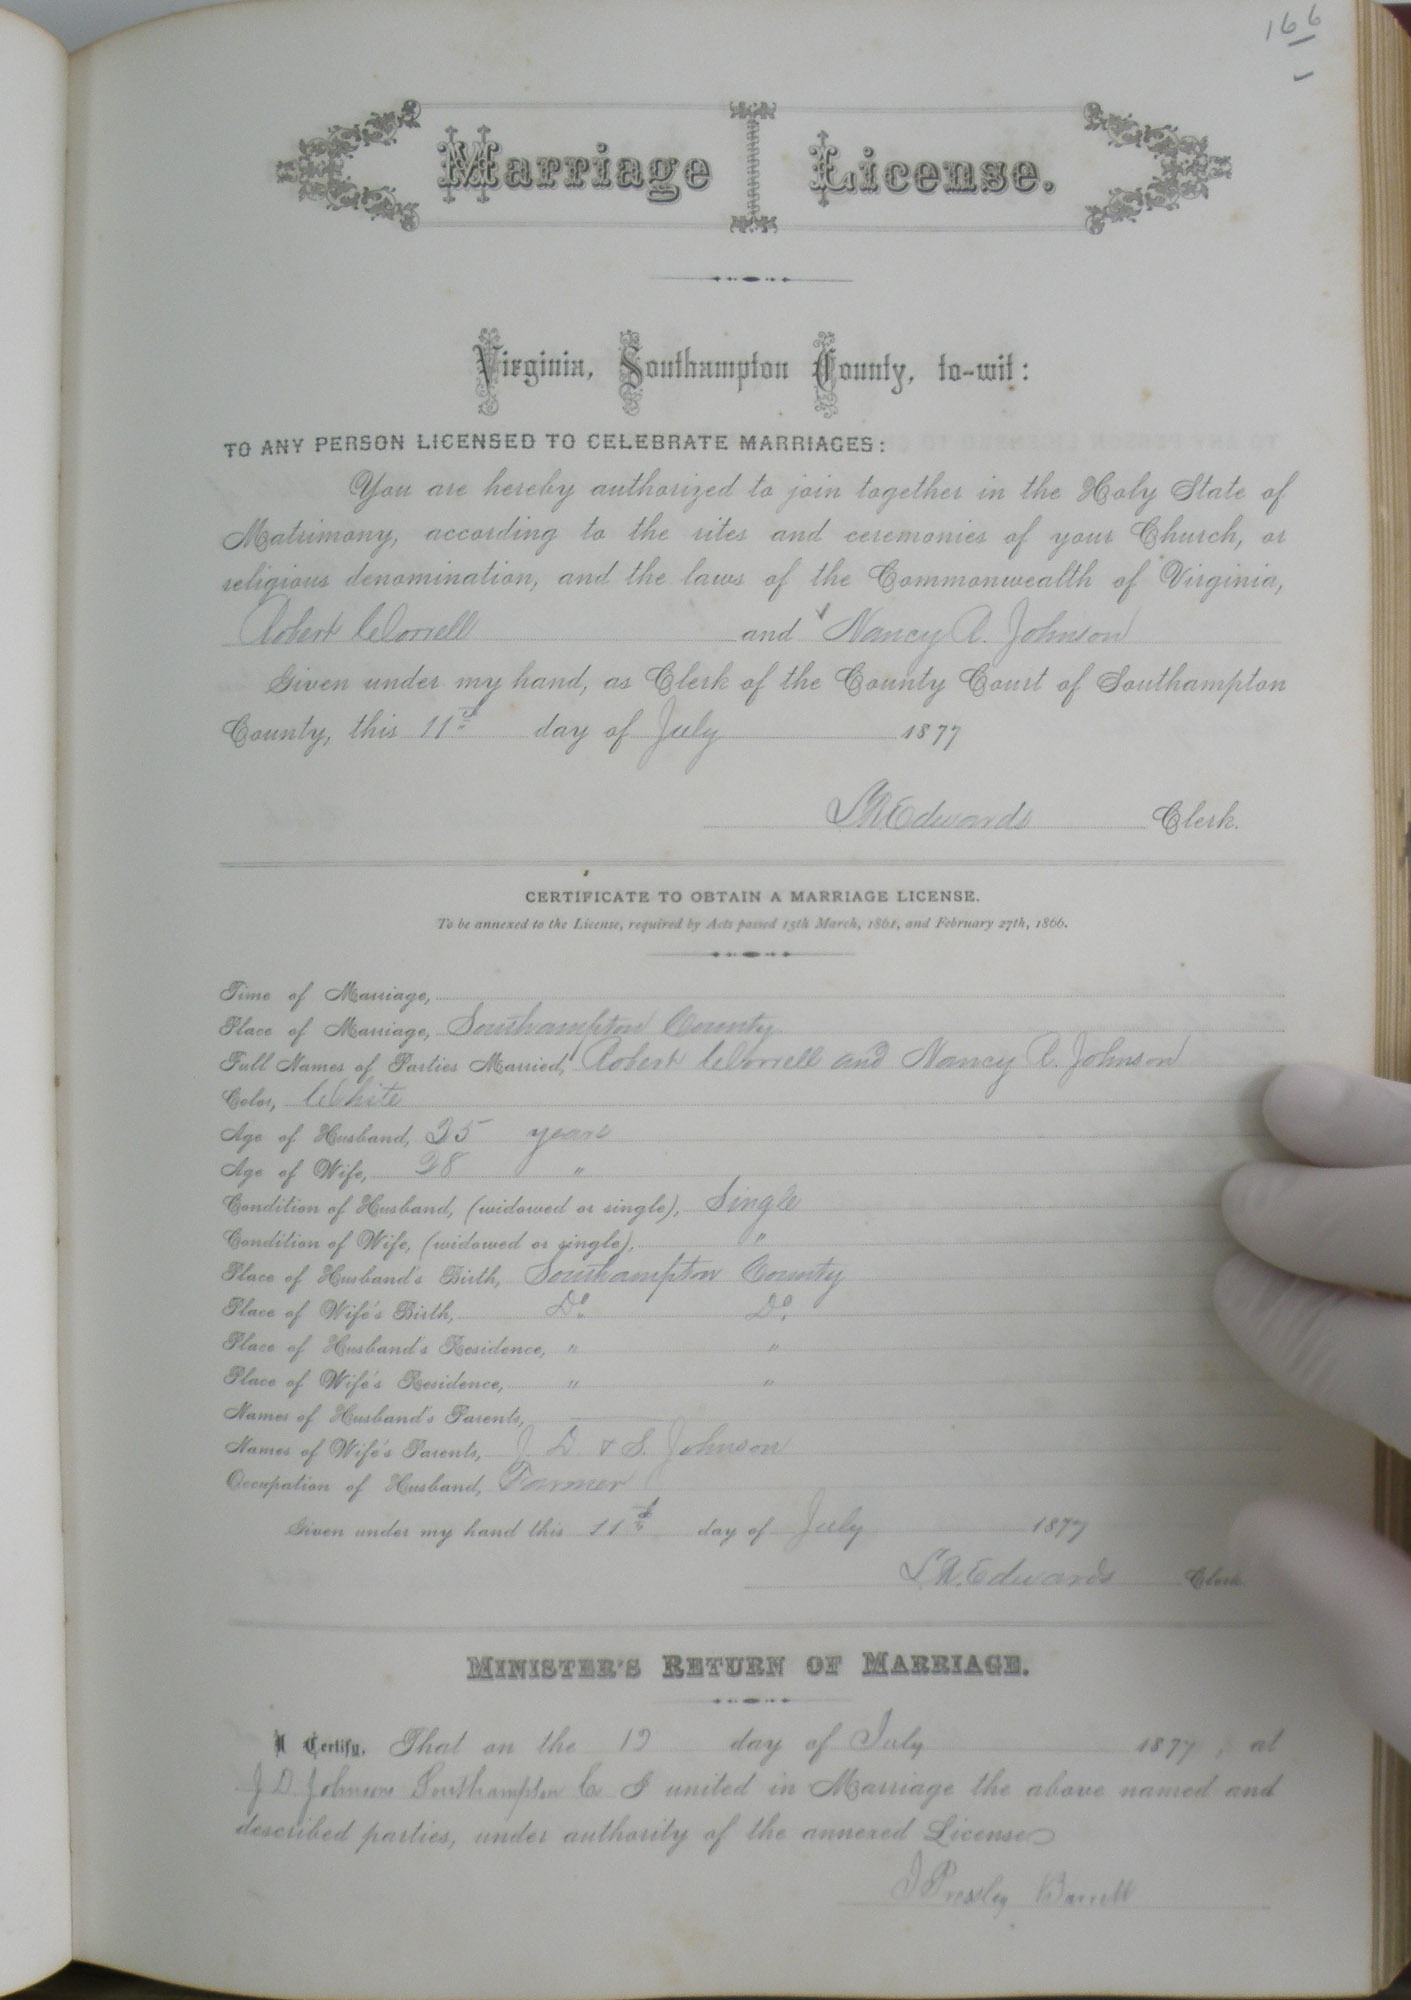 166
Marriage License.
Virginia, Southampton County, to-wit:
TO ANY PERSON LICENSED TO CELEBRATE MARRIAGES:
You are hereby authorized to join together in the Holy State of
Matrimony, according to the rites and ceremonies of your Church, or
religious denomination, and the laws of the Commonwealth of Virginia,
Robert Worrell and Nancy R. Johnson
Given under my hand, as Clerk of the County Court of Southampton
County, this 11th day of July 1877
L R Edwards Clerk.
CERTIFICATE TO OBTAIN A MARRIAGE LICENSE.
To be annexed to the License, required by Acts passed 15th March, 1861, and February 27th, 1866.
Time of Marriage,
Place of Marriage, Southampton County
Full Names of Parties Married, Robert Worrell and Nancy R. Johnson
Color, White
Age of Husband, 25 years
Age of Wife, 28 "
Condition of Husband, (widowed or single), Single
Condition of Wife, (widowed or single), "
Place of Husband's Birth, Southampton County
Place of Wife's Birth, Do. Do.
Place of Husband's Residence, " "
Place of Wife's Residence, " "
Names of Husband's Parents,
Names of Wife's Parents, J. D. & S. Johnson
Occupation of Husband, Farmer
Given under my hand this 11th day of July 1877
L R. Edwards Clerk
MINISTER'S RETURN OF MARRIAGE.
I Certify, That on the 12 day of July 1877, at
J D. Johnsons Southampton Co I united in Marriage the above named and
described parties, under authority of the annexed License
J Presley Barrett